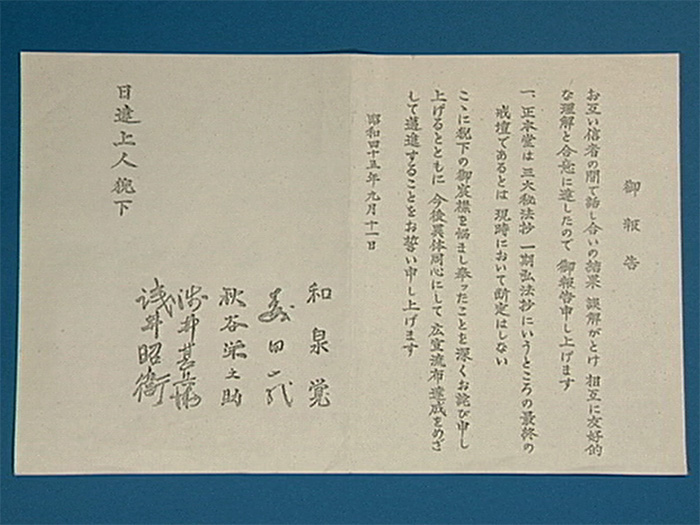 御報告
お互い信者の間で話し合いの結果 誤解がとけ 相互に友好的
な理解と合意に達したので 御報告申し上げます
一、正本堂は 三大秘法抄 一期弘法抄にいうところの最終の
戒壇であるとは 現時において断定はしない
ここに猊下の御宸襟を悩まし奉ったことを深くお詫び申し
上げるとともに 今後異体同心にして 広宣流布達成をめざ
して邁進することをお誓い申し上げます
昭和四十五年九月十一日
和泉覚
森田一哉
秋谷栄之助
浅井甚兵衛
浅井昭衛
日達上人猊下